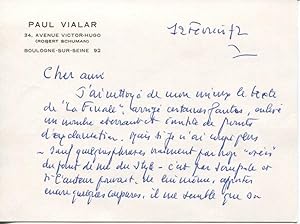 PAUL VIALAR
34, AVENUE VICTOR-HUGO
(ROBERT SCHUMAN)
BOULOGNE-SUR-SEINE 92
12 Février 72
Cher ami
J'ai nettoyé de mon mieux le texte
de "La Finale", corrigé certaines fautes, enlevé
un nombre et complet de points
d'exclamation. Mais si je n'ai coupé
sauf quelques phrases vraiment par trop
du point de vue du style - c'est par scrupule et
si l'auteur pouvait, de lui-même, apporter
encore quelques coupures, il me semble que sa